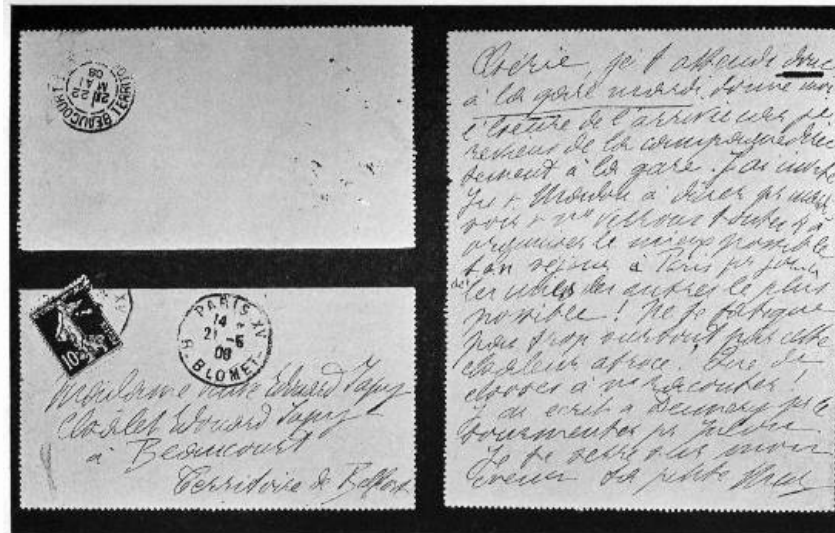 BEAUCOURT TERRIT
22
21
MAI
08
PARIS XV
14
21 -5
08
R. BLOMET
10
Madame Edouard Japy
Chalet Edouard Japy
à Beaucourt
Territoire de Belfort
Chérie, je t'attends donc
à la gare mardi, donne moi
l'heure de l'arrivée car je
reviens de la campagne
à la gare. J'ai invité
à diner
voir + ns verrons toutes 4 à
organiser le mieux possible
ton séjour à Paris pr jouir
les unes des autres le plus
possible ! Ne te fatigue
pas trop surtout par cette
chaleur atroce. Que de
choses à ns raconter !
J'ai écrit à
tourmenter pr
Je te serre sur mon
coeur ta petite